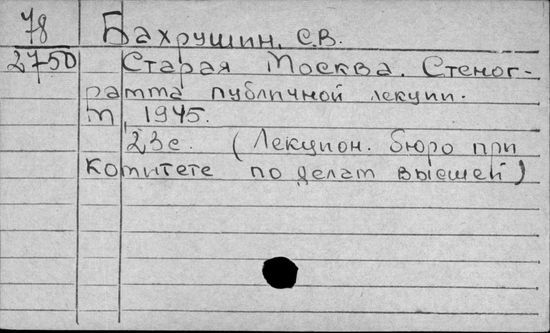 78 Бахрушин, С.В.
2750 Старая Москва. Стеног-
рамма публичной лекции.
м, 1945.
23с. (Лекцион. бюро при
комитете по делам высшей)